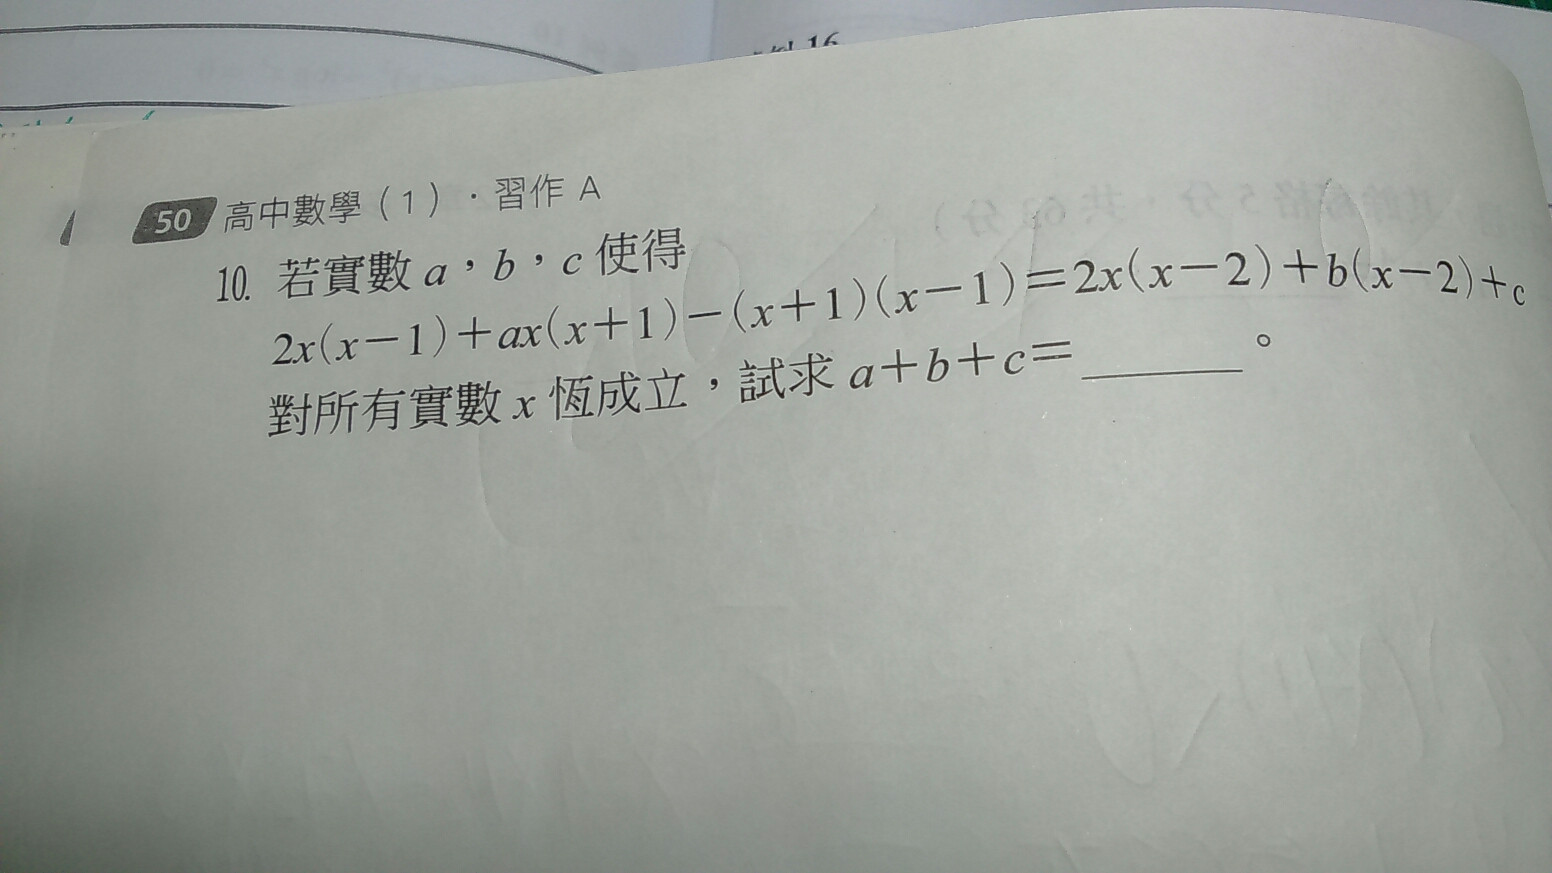 例 16
50 高中數學（1）．習作 A
10. 若實數 a，b，c 使得
2x(x−1)+ax(x+1)−(x+1)(x−1)=2x(x−2)+b(x−2)+c
對所有實數 x 恆成立，試求 a+b+c=______。